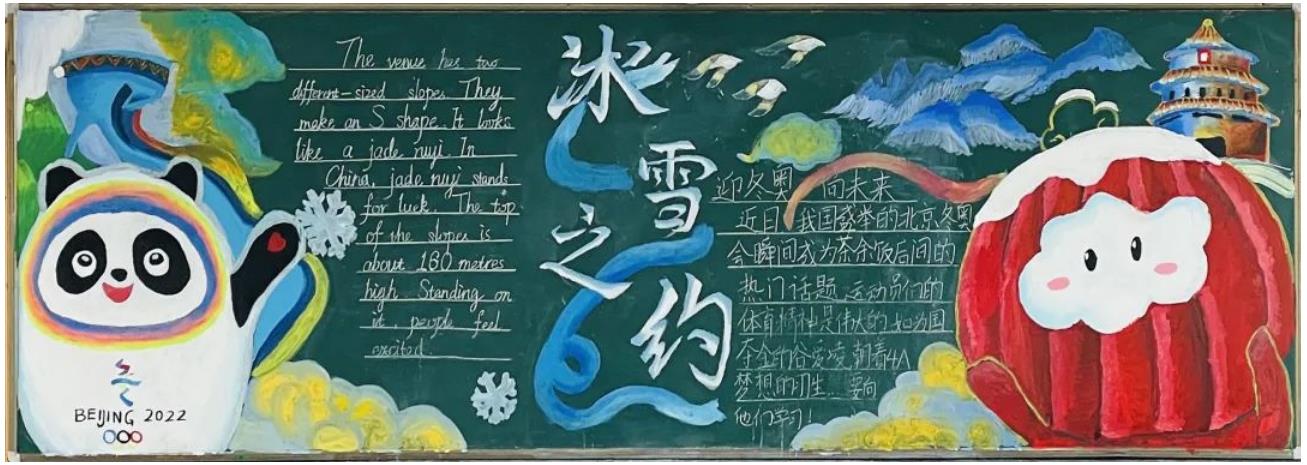 The venue has two
different-sized slopes. They
make an S shape. It looks
like a jade ruyi. In
China, jade ruyi stands
for luck. The top
of the slopes is
about 160 metres
high Standing on
it, people feel
excited.
冰雪之约
迎冬奥 向未来
近日,我国盛举的北京冬奥
会瞬间成为茶余饭后间的
热门话题,运动员们的
体育精神是伟大的,如为国
夺金的谷爱凌,朝着4A
梦想的羽生..要向
他们学习!
BEIJING 2022